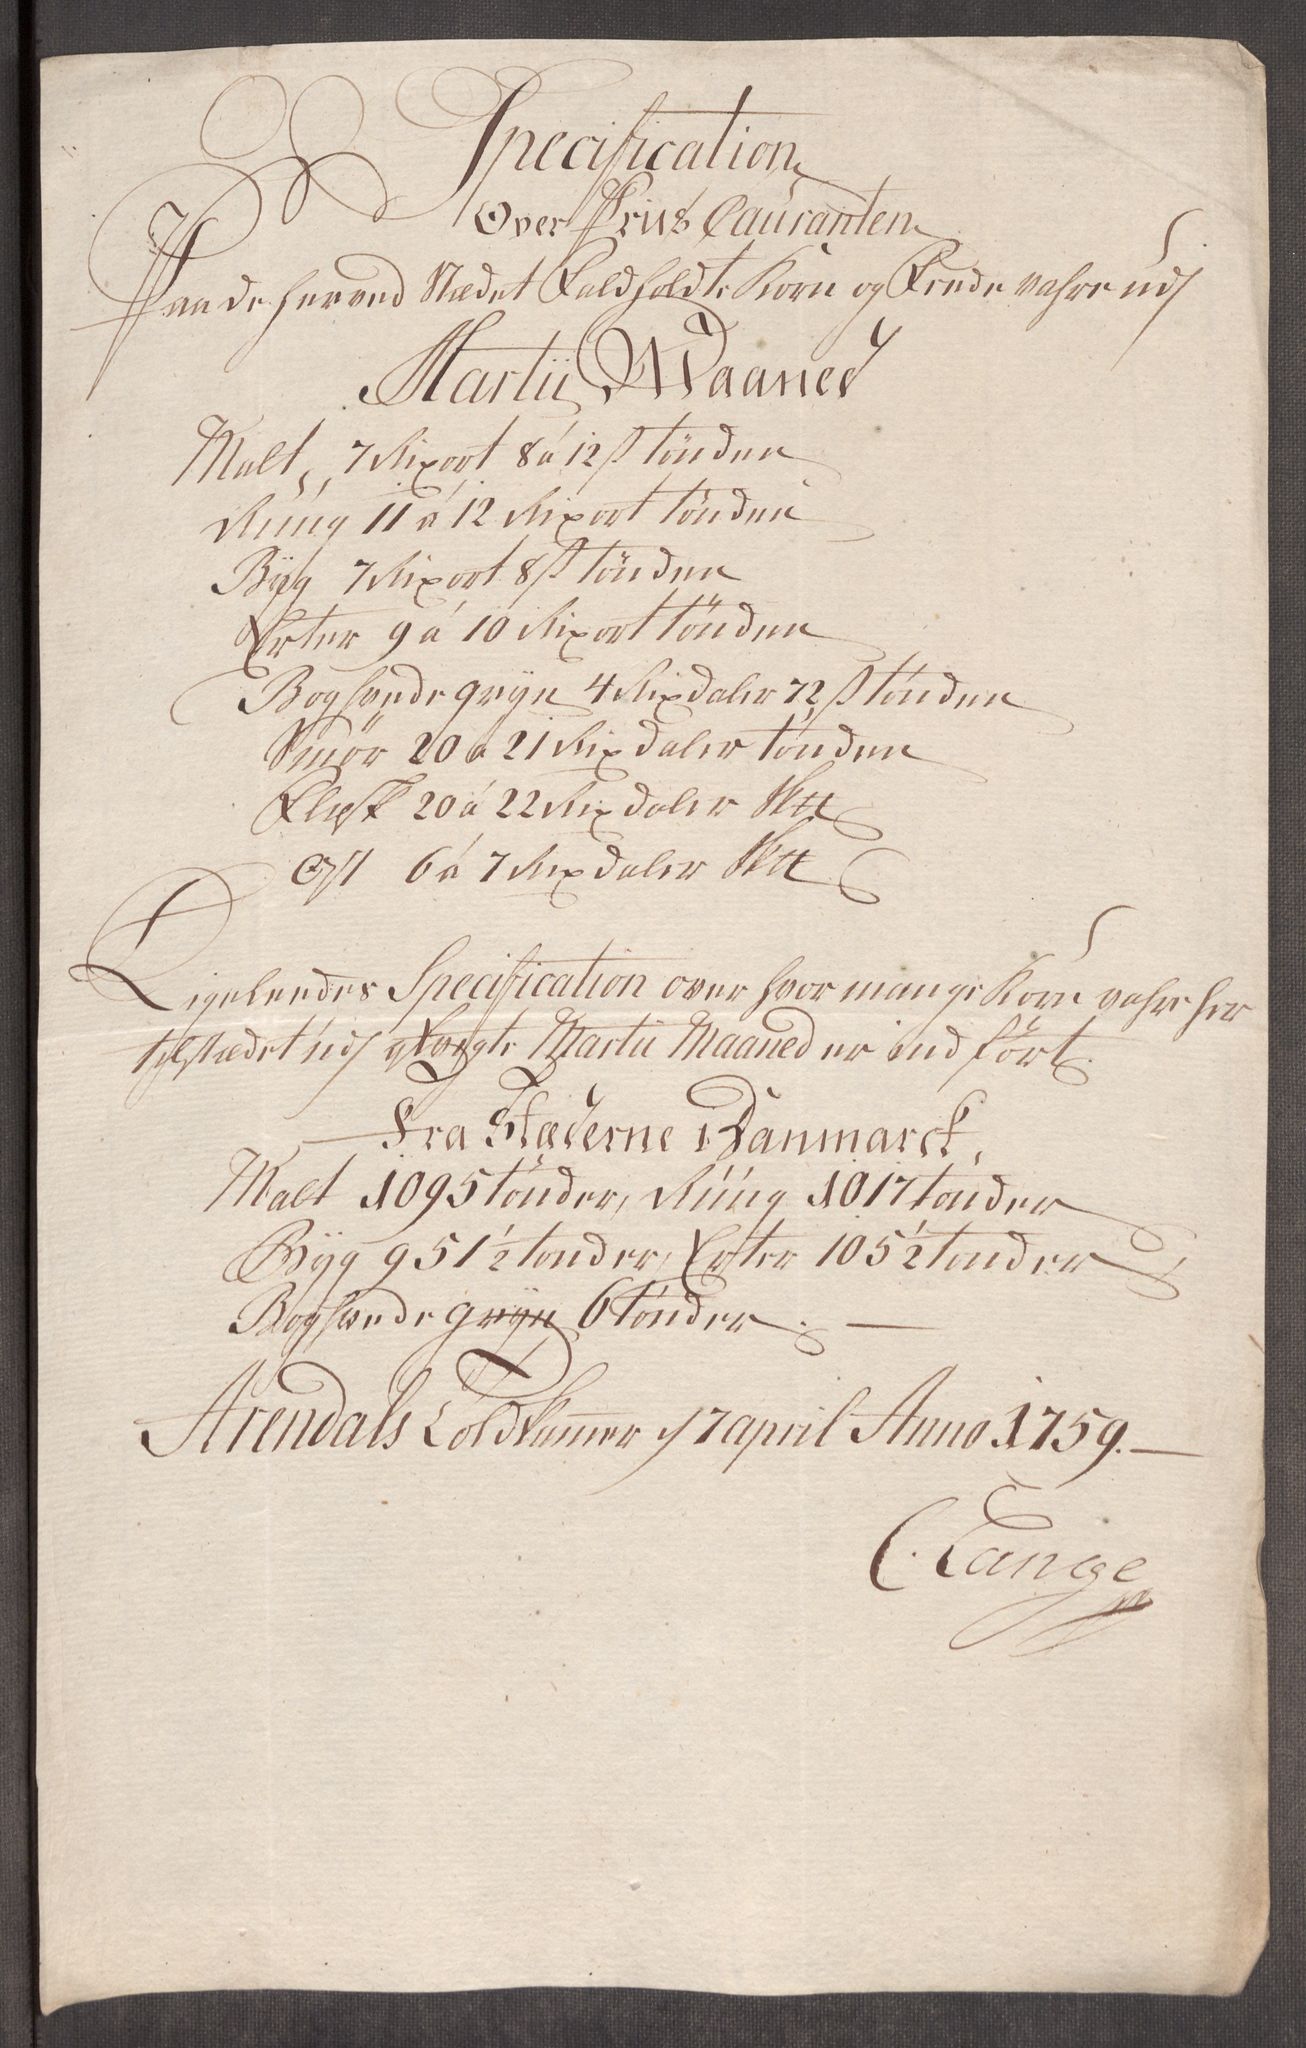 Specification
Over Priis Couranten
Paa de her ved Stædet Faldholdte Korn og Fede vahre udj
Martii Maaned
Malt, 7 Rixort 8 á 12 ß tönden
Rúúg 11 á 12 Rixort tönden
Bÿg 7 Rixort 8 ß tönden
Erter 9 á 10 Rixort tönden
Boghvede grÿn 4 Rixdaler 72 ß tönden
Smör 20 á 21 Rixdaler tönden
Flesk 20 á 22 Rixdaler Sktt
Ost 6 á 7 Rixdaler Sktt
Ligeleedes Specification over hvor mange Korn vahre her
til stædet udj Martii Maaned er ind fört.
Fra Stæderne i Danmarck,
Malt 1095 tönder, Rúúg 1017 tönder
Bÿg 951 ½ tonder, Erter 105 ½ tonder
Boghvede grÿn 6 tönder. —
Arendals Toldkammer 17 april Anno 1759. —
C. Lange